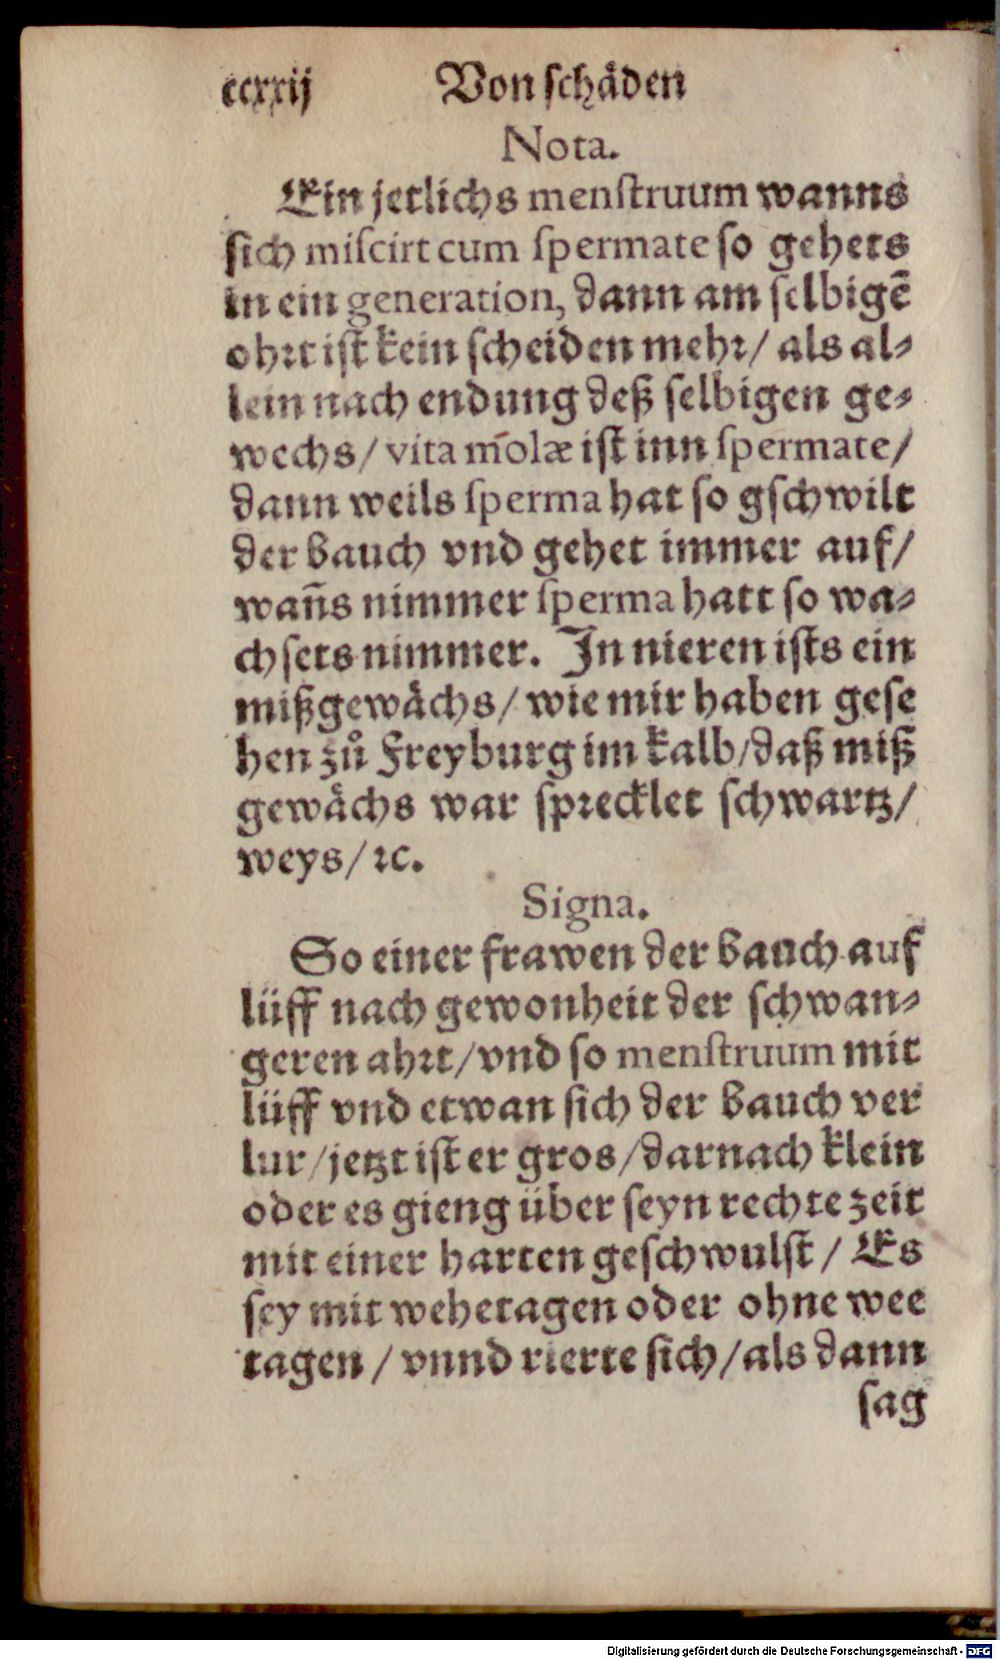 ccxxij Von schåden
Nota.
Ein jetlichs menſtruum wanns
ſich miſcirt cum ſpermate ſo gehets
in ein generation, dann am ſelbigẽ
ohꝛt iſt kein ſcheiden mehꝛ/ als al⸗
lein nach endung deß ſelbigen ge⸗
wechs/ vita m̃olæ iſt inn ſpermate/
dann weils ſperma hat ſo gſchwilt
der bauch vnd gehet immer auf/
wañs nimmer ſperma hatt ſo wa⸗
chſets nimmer. In nieren iſts ein
mißgewåchs/ wie mir haben geſe
hen zů Freyburg im kalb/daß miß
gewåchs war ſpꝛecklet ſchwartz/
weys/ ꝛc.
Signa.
So einer frawen der bauch auf
lüff nach gewonheit der ſchwan⸗
geren ahꝛt/ vnd ſo menſtruum mit
lüff vnd etwan ſich der bauch ver
lur/jetzt iſt er gros/darnach klein
oder es gieng über ſeyn rechte zeit
mit einer harten geſchwulſt/ Es
ſey mit wehetagen oder ohne wee
tagen/ vnnd rierte ſich/als dann
ſag
Digitalisierung gefördert durch die Deutsche Forschungsgemeinschaft - DFG